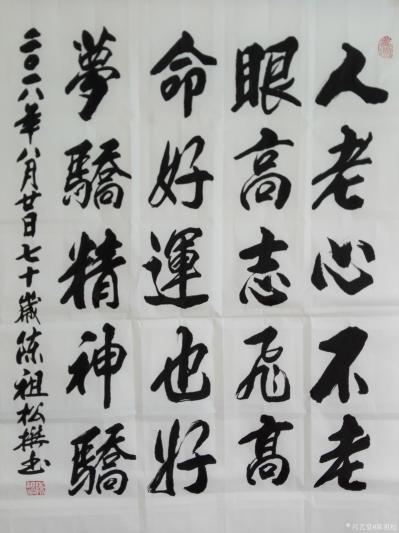 人老心不老
眼高志飛高
命好運也好
夢驕精神驕
二〇一八年八月廿日七十歲陈祖松撰书